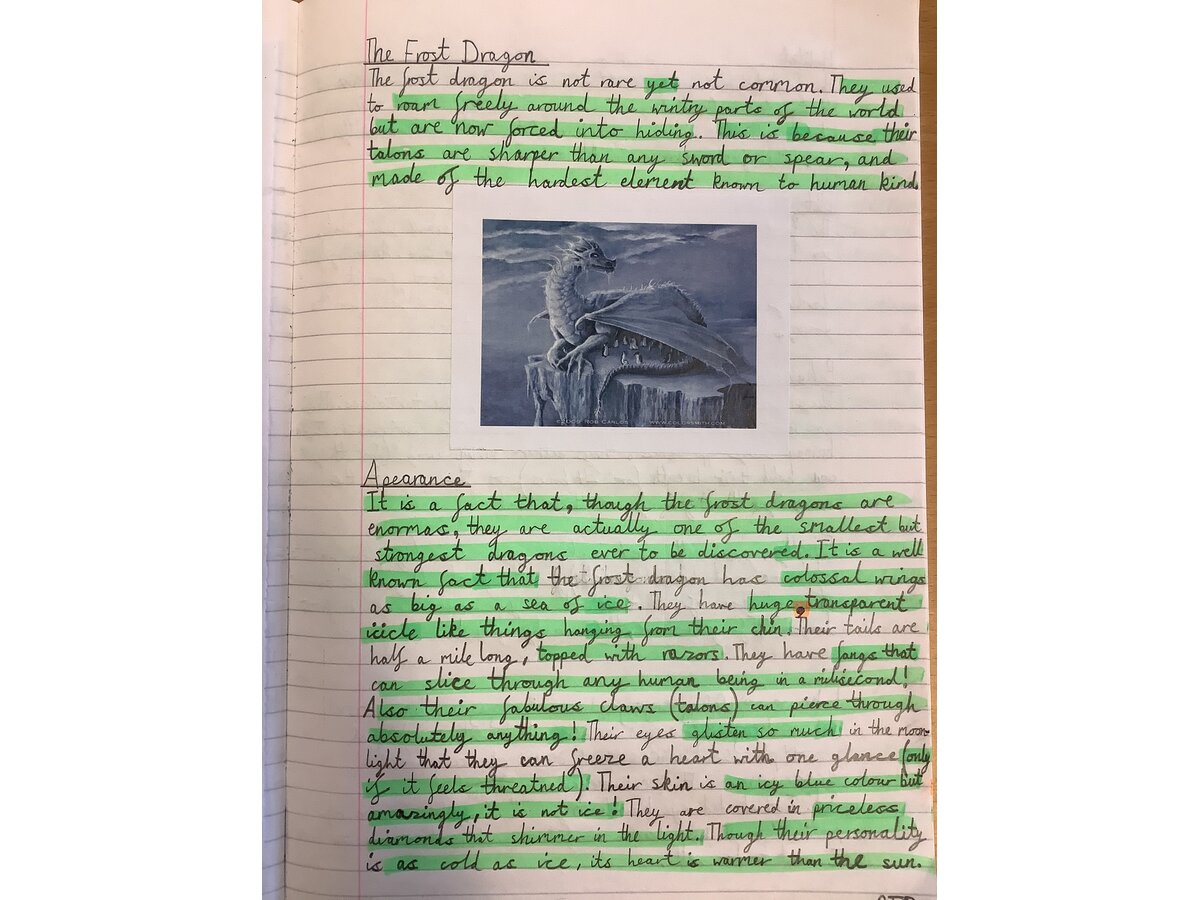 The Frost Dragon
The frost dragon is not rare yet not common. They used
to roam freely around the wintry parts of the world
but are now forced into hiding. This is because their
talons are sharper than any sword or spear, and
made of the hardest element known to human kind.
©2009 ROB CARLOS WWW.COLORSMITH.COM
Apearance
It is a fact that, though the frost dragons are
enormas, they are actually one of the smallest but
strongest dragons ever to be discovered. It is a well
known fact that the frost dragon has colossal wings
as big as a sea of ice. They have huge, transparent
icicle like things hanging from their chin. Their tails are
half a mile long, topped with razors. They have fangs that
can slice through any human being in a milisecond!
Also their fabulous claws (talons) can pierce through
absolutely anything! Their eyes glisten so much in the moon-
light that they can freeze a heart with one glance (only
if it feels threatned). Their skin is an icy blue colour but
amazingly, it is not ice! They are covered in priceless
diamonds that shimmer in the light. Though their personality
is as cold as ice, its heart is warmer than the sun.